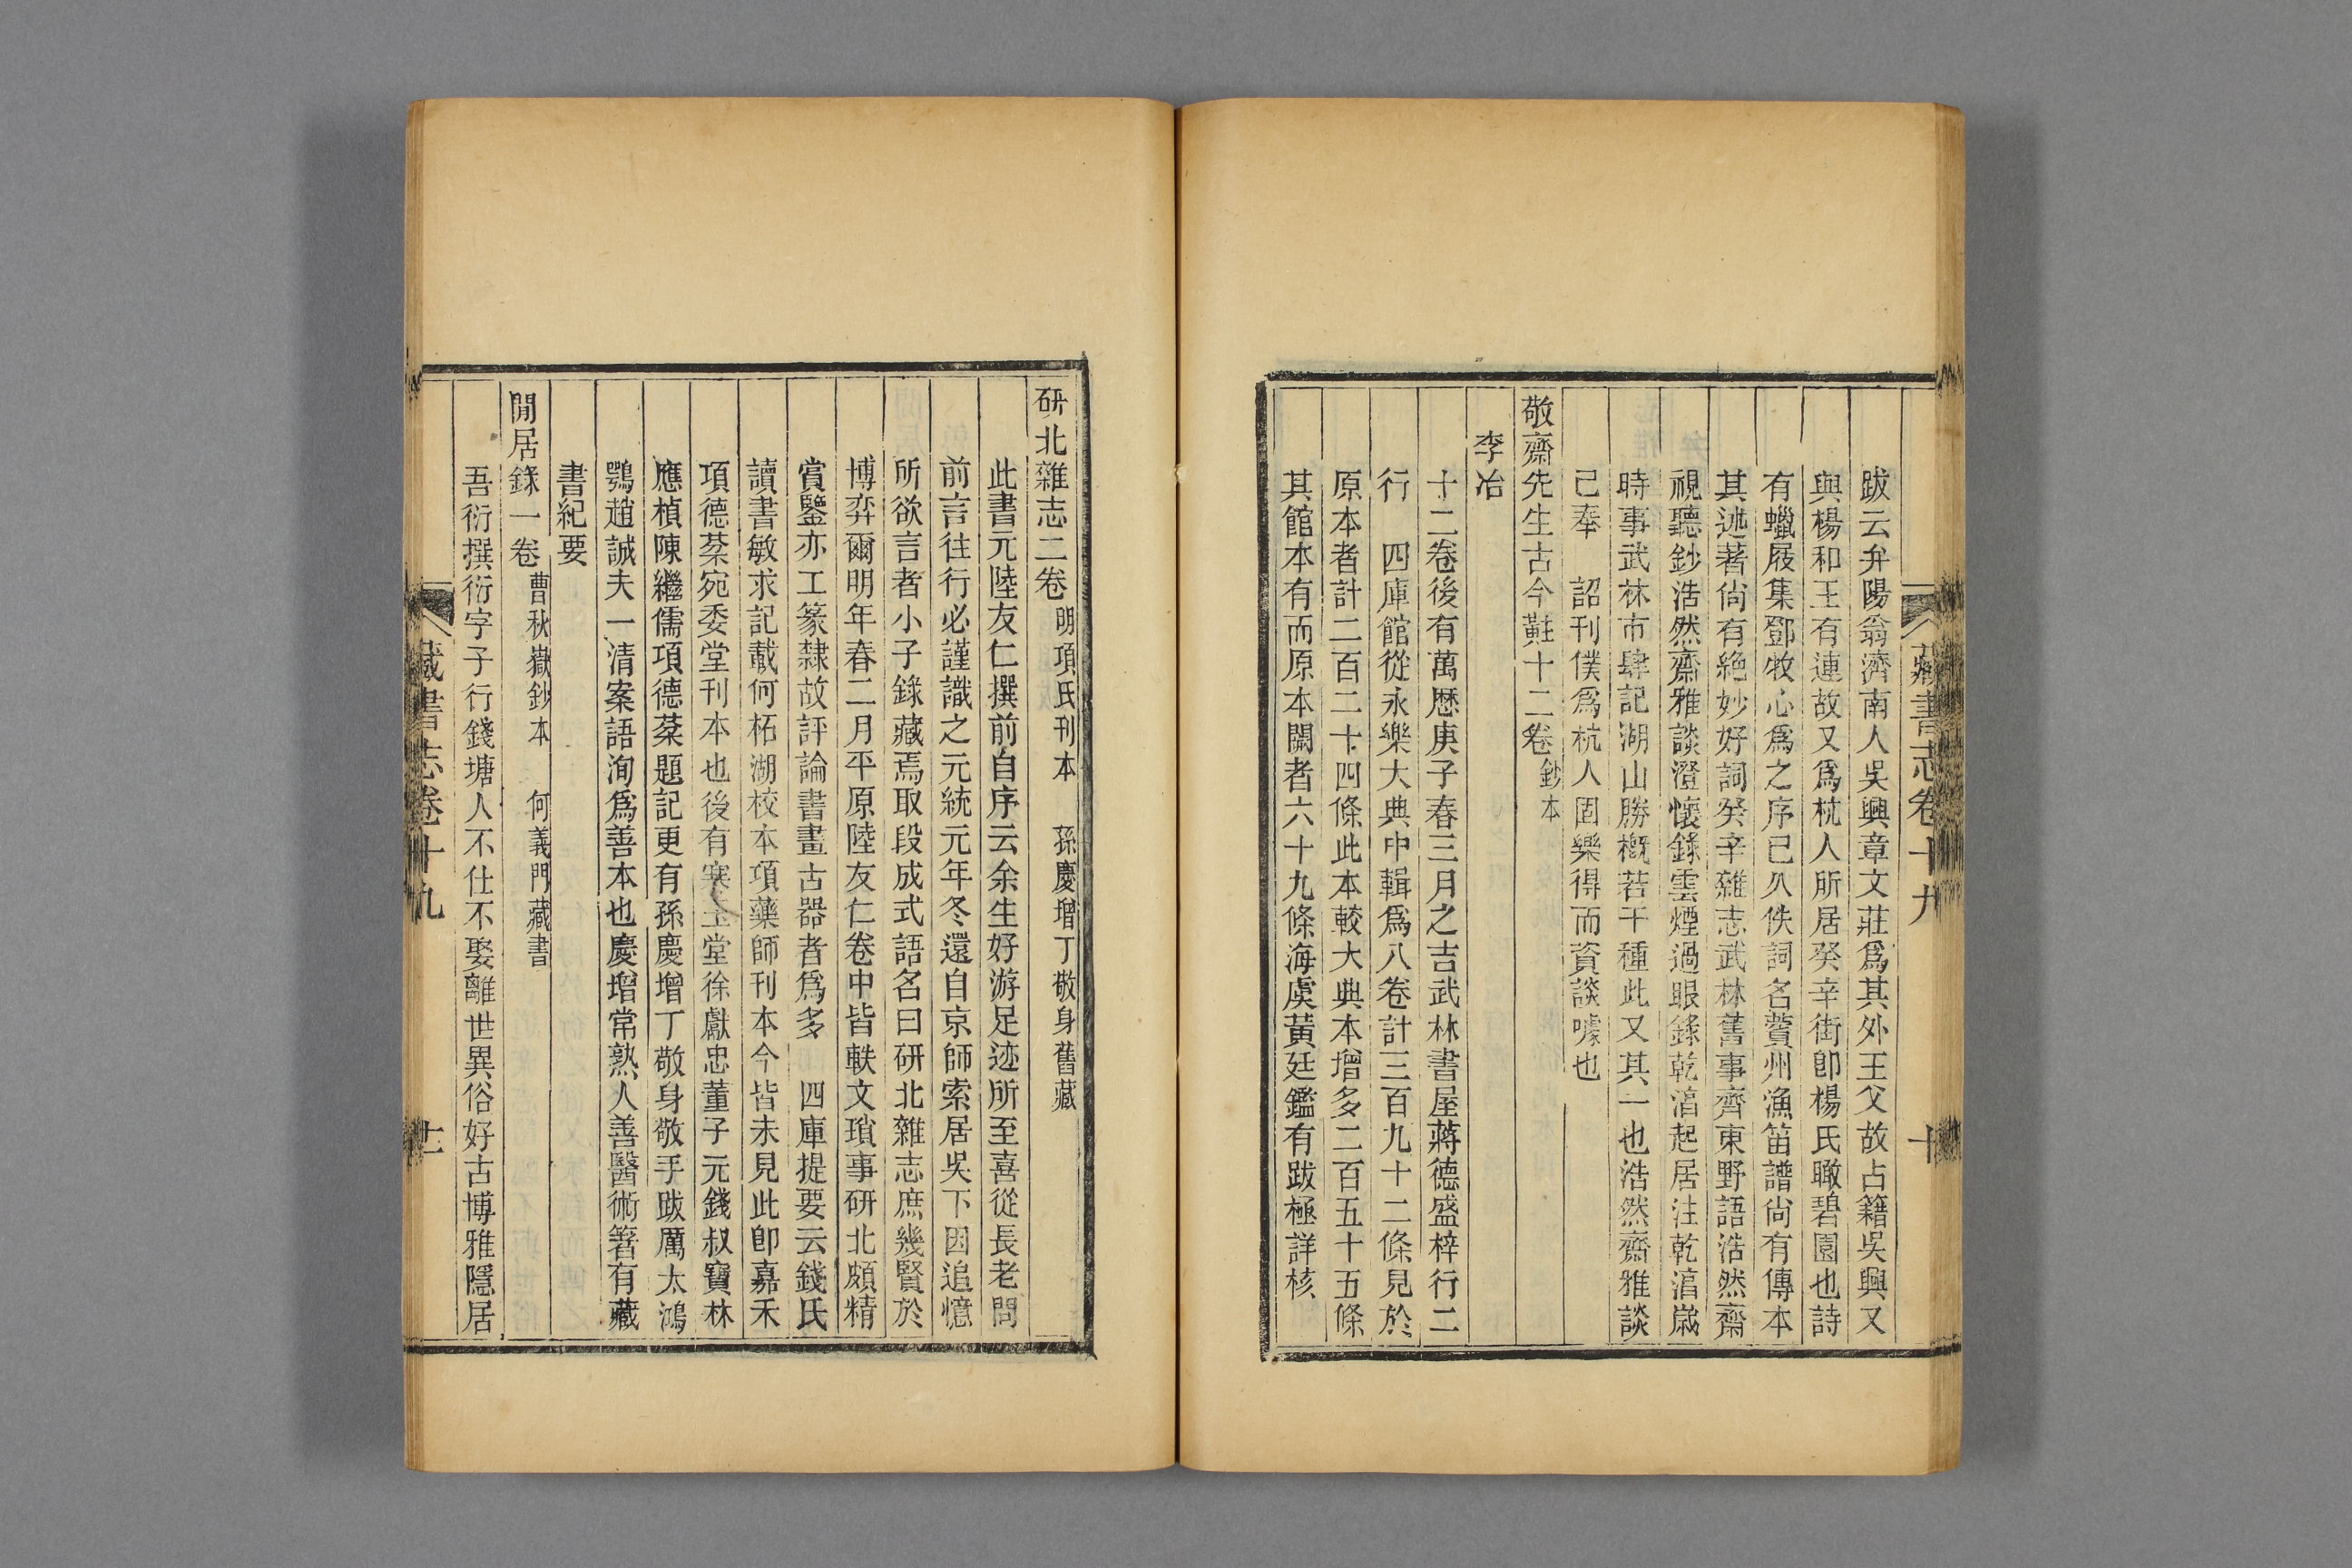 藏書志卷十九
十
跋云弁陽翁濟南人吳興章文莊爲其外王父故占籍吳興又
與楊和王有連故又爲杭人所居癸辛街卽楊氏瞰碧園也詩
有蠟屐集鄧牧心爲之序已久佚詞名薲州漁笛譜尙有傳本
其述著尙有絶妙好詞癸辛雜志武林舊事齊東野語浩然齋
視聽鈔浩然齋雅談澄懷錄雲煙過眼錄乾湻起居注乾湻歲
時事武林市肆記湖山勝槪若干種此又其一也浩然齋雅談
己奉　詔刊僕爲杭人固樂得而資談噱也
敬齋先生古今黈十二卷鈔本
李冶
十二卷後有萬歷庚子春三月之吉武林書屋蔣德盛梓行二
行　四庫館從永樂大典中輯爲八卷計三百九十二條見於
原本者計二百二十四條此本較大典本增多二百五十五條
其館本有而原本闕者六十九條海虞黃廷鑑有跋極詳核
研北雜志二卷明項氏刊本　孫慶增丁敬身舊藏
此書元陸友仁撰前自序云余生好游足迹所至喜從長老問
前言往行必謹識之元統元年冬還自京師索居吳下因追憶
所欲言者小子錄藏焉取段成式語名曰研北雜志庶幾賢於
博弈爾明年春二月平原陸友仁卷中皆軼文瑣事研北頗精
賞鑒亦工篆隸故評論書畫古器者爲多　四庫提要云錢氏
讀書敏求記載何柘湖校本項藥師刊本今皆未見此卽嘉禾
項德棻宛委堂刊本也後有寒玉堂徐獻忠董子元錢叔寶林
應楨陳繼儒項德棻題記更有孫慶增丁敬身敬手跋厲太鴻
鶚趙誠夫一清案語洵爲善本也慶增常熟人善醫術箸有藏
書紀要
閒居錄一卷曹秋嶽鈔本　何義門藏書
吾衍撰衍字子行錢塘人不仕不娶離世異俗好古博雅隱居
藏書志卷十九
十一